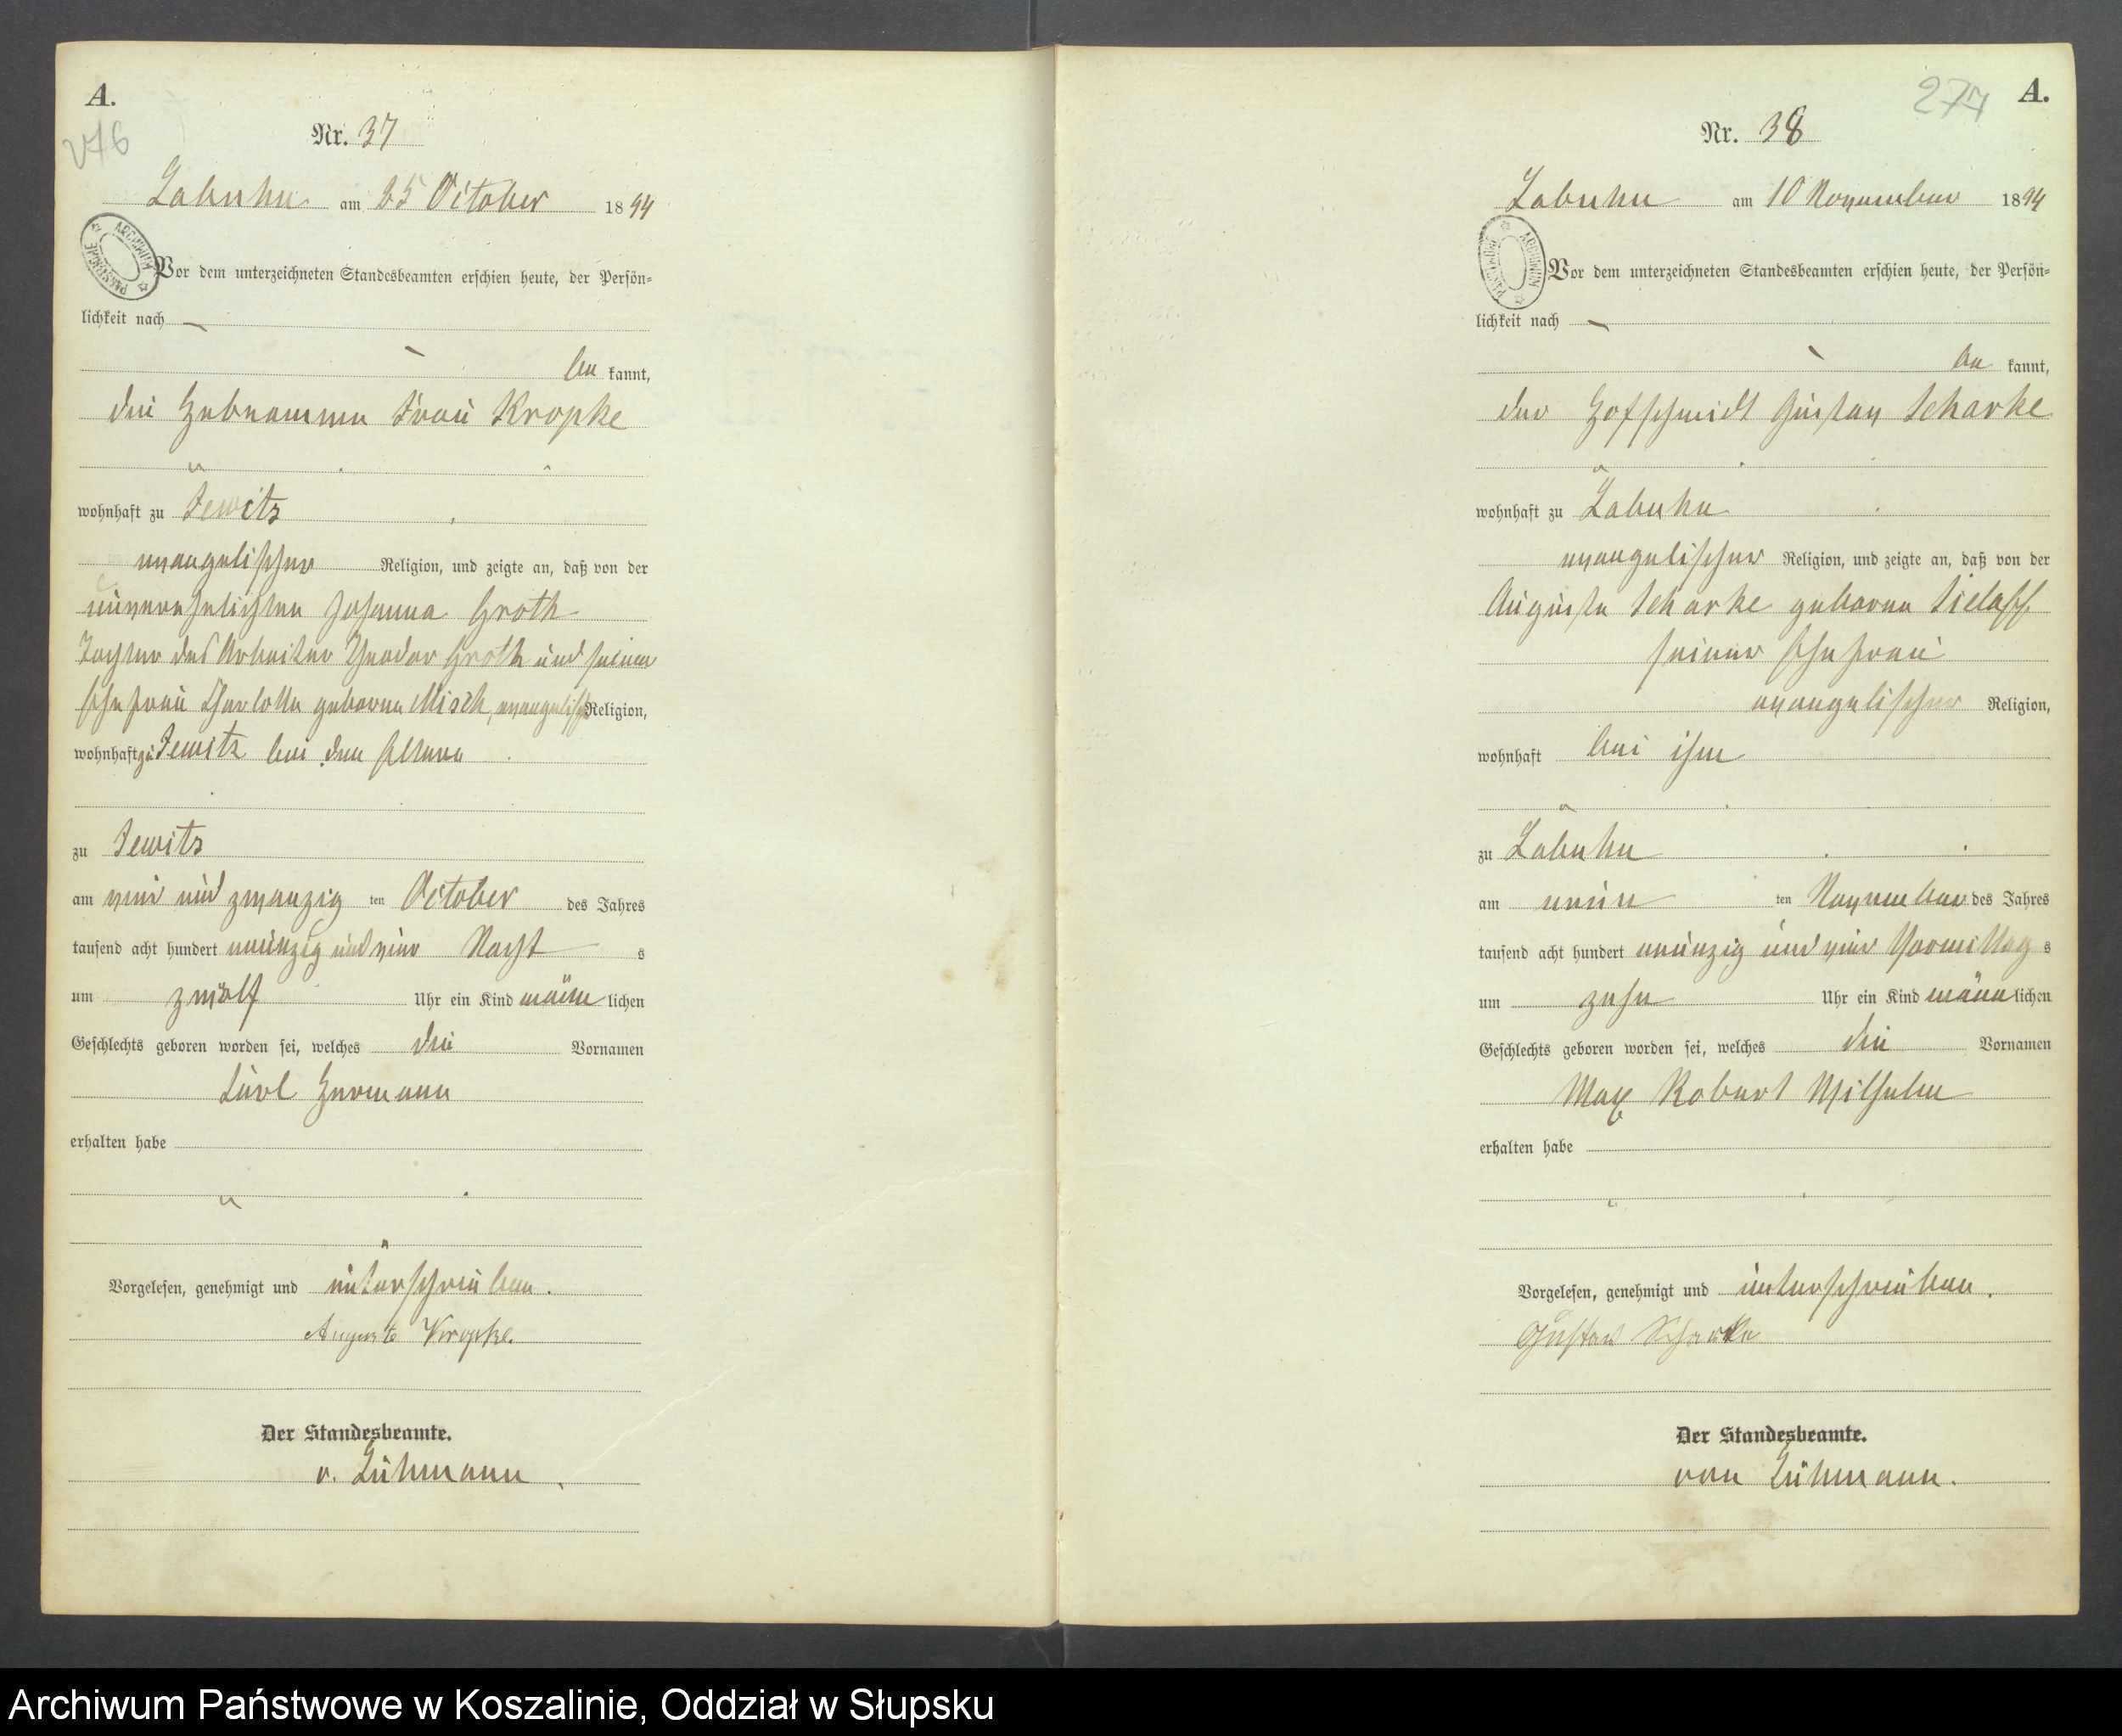 A.
276
Nr. 37
Labuhn am 25 October 1894
ARCHIWUM PAŃSTWOWE
Vor dem unterzeichneten Standesbeamten erschien heute, der Persön-
lichkeit nach
be kannt,
die Hebeamme Frau Kropke
wohnhaft zu Jewitz
evangelischer Religion, und zeigte an, daß von der
unverehelichten Johanna Groth
Tochter des Arbeiter Theodor Groth und seiner
Ehefrau Charlotte geborne Misch, evangelisch Religion,
wohnhaft zu Jewitz bei den Eltern
zu Jewitz
am vier und zwanzig ten October des Jahres
tausend acht hundert neunzig und vier Nacht s
um zwölf Uhr ein Kind männ lichen
Geschlechts geboren worden sei, welches die Vornamen
Hermann
erhalten habe
Vorgelesen, genehmigt und unterschrieben.
Auguste Kropke.
Der Standesbeamte.
v. Lühmann
A.
277
Nr. 38
Labuhn am 10 November 1894
ARCHIWUM PAŃSTWOWE
Vor dem unterzeichneten Standesbeamten erschien heute, der Persön-
lichkeit nach
be kannt,
der Hofschmidt Gustav Scharke
wohnhaft zu Labuhn
evangelischer Religion, und zeigte an, daß von der
Auguste Scharke geborne Sielaff
seiner Ehefrau
evangelischer Religion,
wohnhaft bei ihm
zu Labuhn
am neun ten November des Jahres
tausend acht hundert neunzig und vier Vormittag s
um zehn Uhr ein Kind männ lichen
Geschlechts geboren worden sei, welches die Vornamen
Max Robert Wilhelm
erhalten habe
Vorgelesen, genehmigt und unterschrieben.
Gustav Scharke
Der Standesbeamte.
von Lühmann.
Archiwum Państwowe w Koszalinie, Oddział w Słupsku